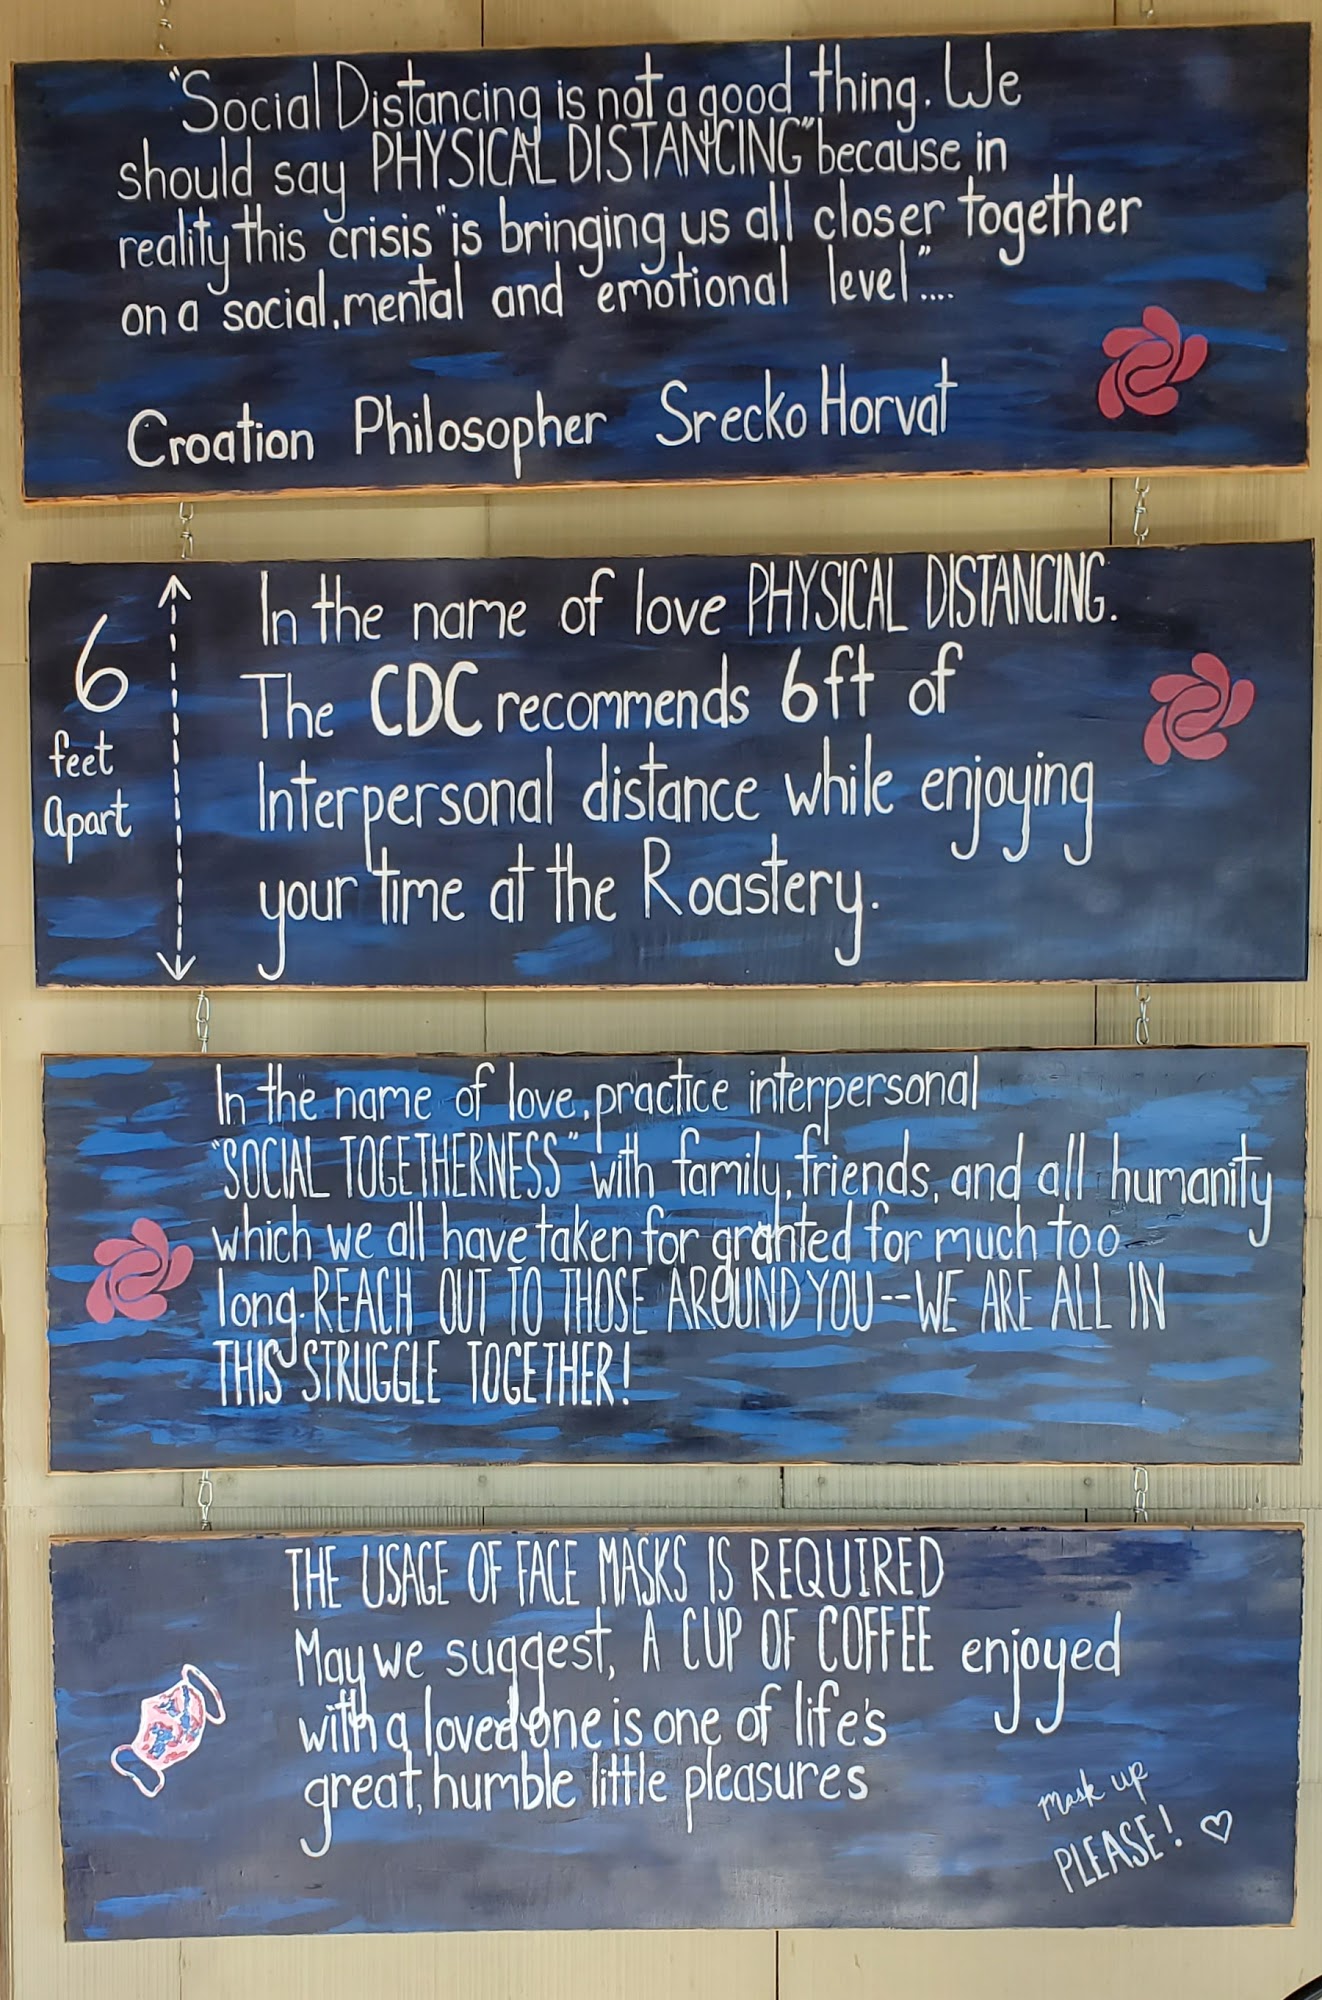 "Social Distancing is not a good thing. We
should say PHYSICAL DISTANCING" because in
reality this "crisis" is bringing us all closer together
on a social, mental and emotional level"....
Croation Philosopher Srecko Horvat
6
feet
apart
In the name of love PHYSICAL DISTANCING.
The CDC recommends 6ft of
Interpersonal distance while enjoying
your time at the Roastery.
In the name of love, practice interpersonal
"SOCIAL TOGETHERNESS" with family, friends, and all humanity
which we all have taken for granted for much too
long. REACH OUT TO THOSE AROUND YOU--WE ARE ALL IN
THIS STRUGGLE TOGETHER!
THE USAGE OF FACE MASKS IS REQUIRED
May we suggest, A CUP OF COFFEE enjoyed
with a loved one is one of life's
great, humble little pleasures
mask up
PLEASE!